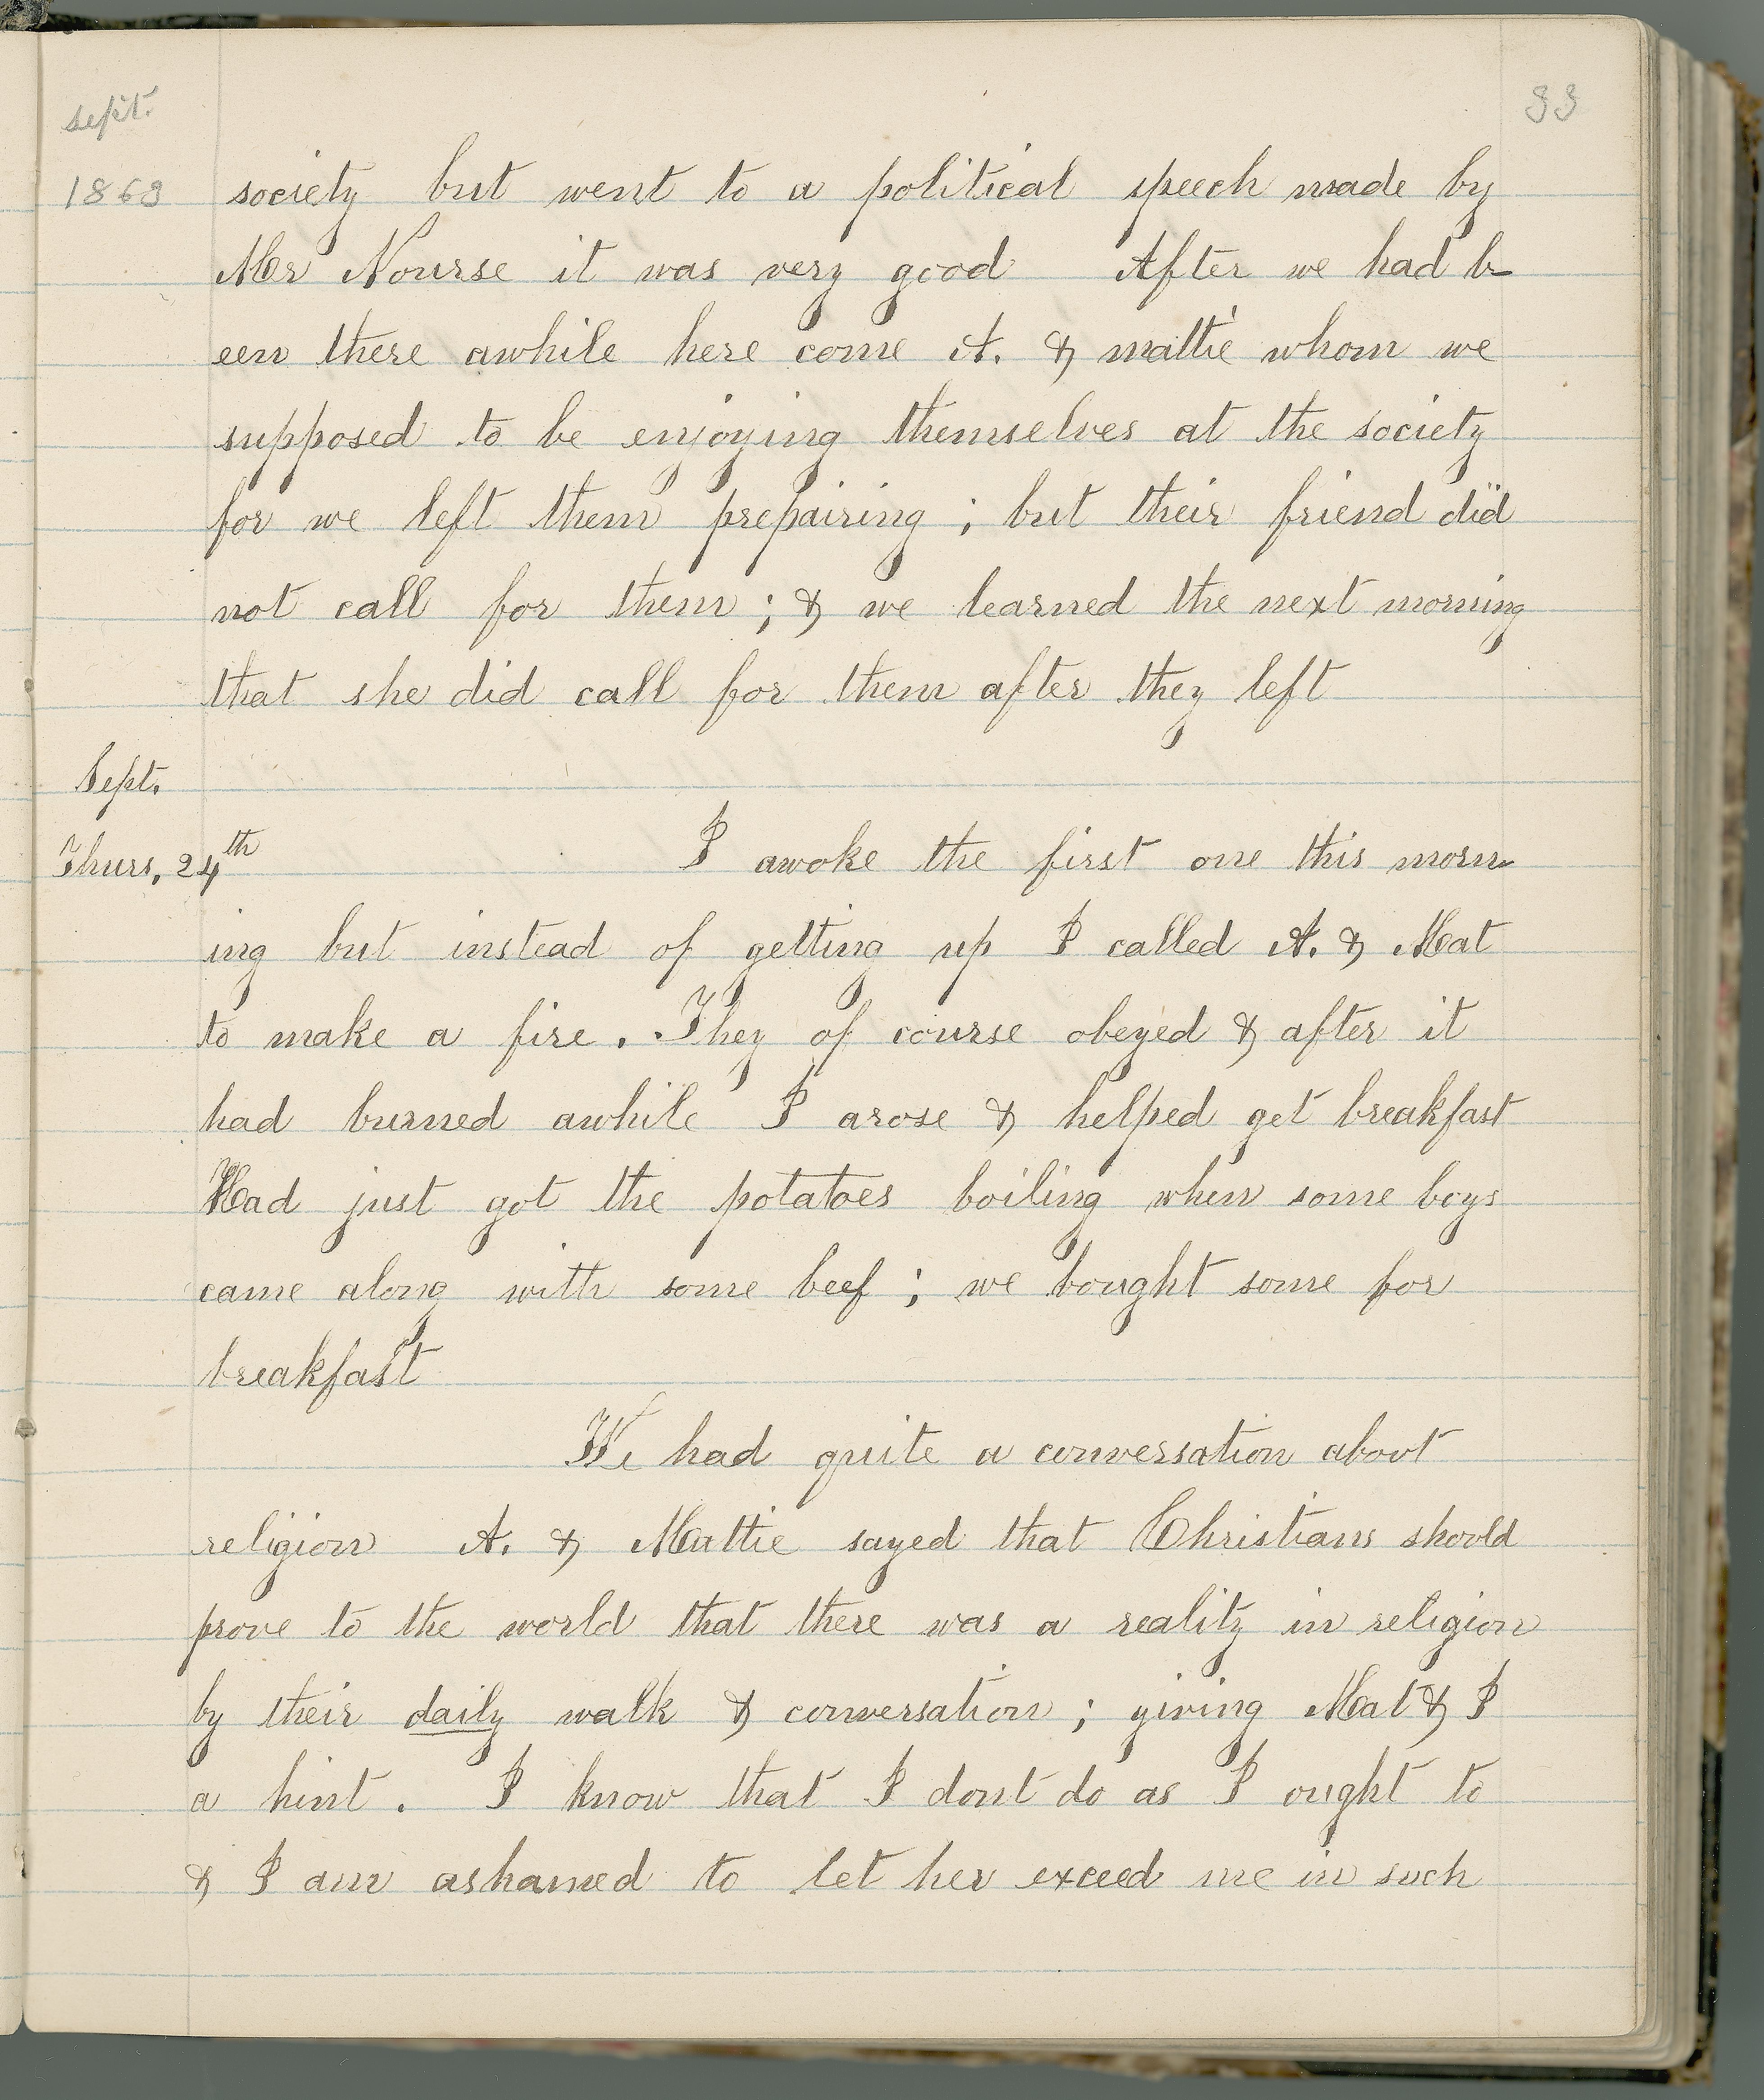 sept. 33
1863 society but went to a political speech made by
Mr Nourse it was very good After we had b
een there awhile here come A. & mattie whom we
supposed to be enjoying themselves at the society
for we left them prepairing ; but their friend did
not call for them ; & we learned the next morning
that she did call for them after they left
Sept.
Thurs, 24th I awoke the first one this morn
ing but instead of getting up I called A. & Mat
to make a fire. They of course obeyed & after it
had burned awhile I arose & helped get breakfast
Had just got the potatoes boiling when some boys
came along with some beef ; we bought some for
breakfast
We had quite a conversation about
religion A. & Mattie sayed that Christians should
prove to the world that there was a reality in religion
by their daily walk & conversation ; giving Mat & I
a hint. I know that I dont do as I ought to
& I am ashamed to let her exceed me in such